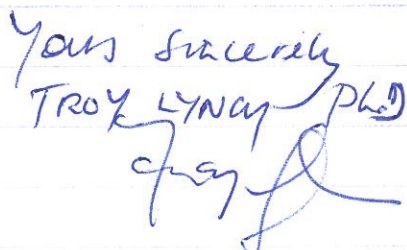 Yours Sincerely
TROY LYNCH PhD